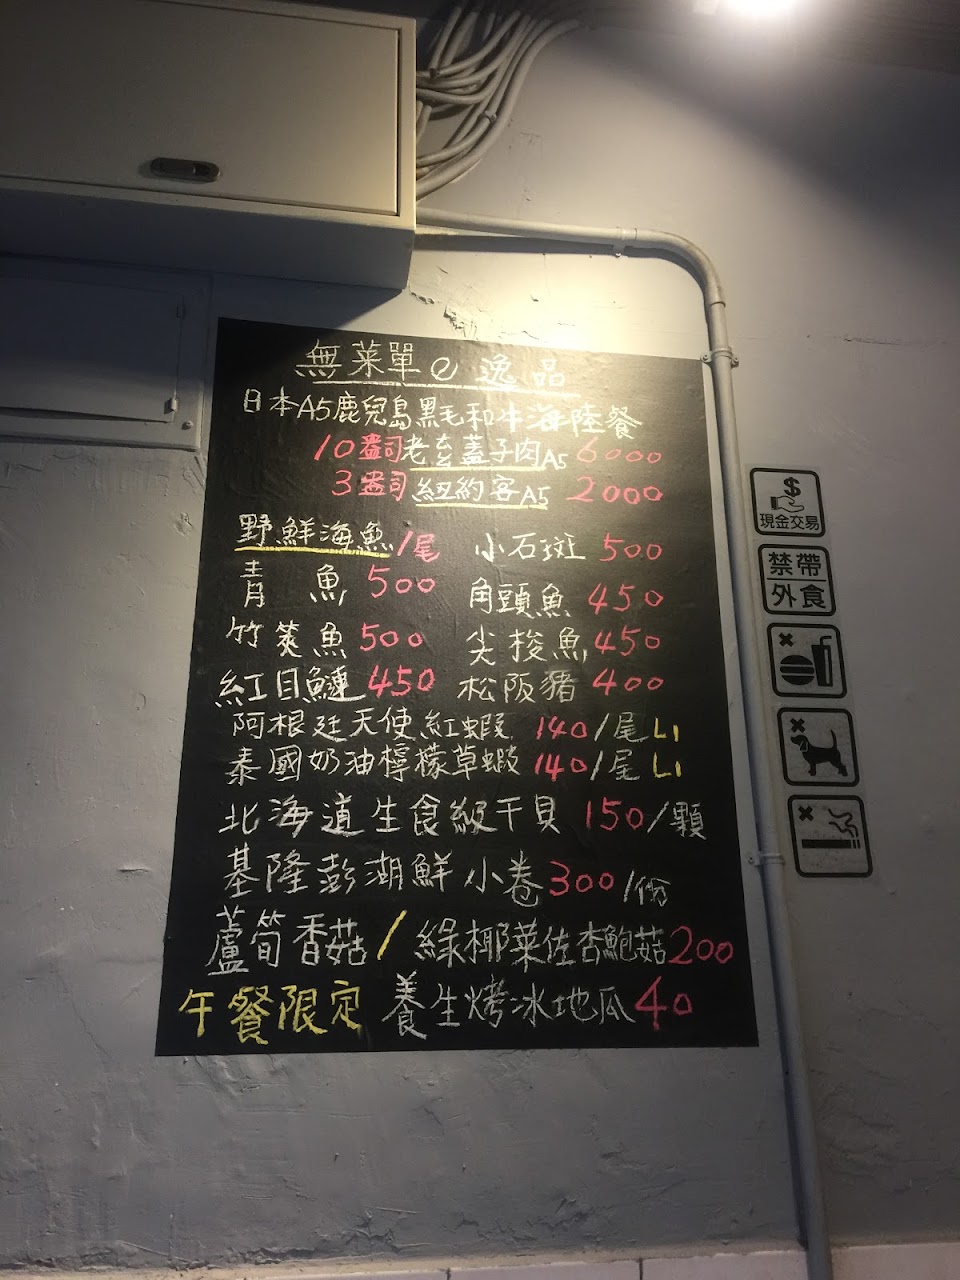 無菜單e逸品
日本A5鹿兒島黑毛和牛海陸餐
10盎司老玄蓋子肉A5 6000
3盎司紐約客A5 2000
野鮮海魚/尾 小石斑 500
青魚 500 角頭魚 450
竹筴魚 500 尖梭魚 450
紅目鰱 450 松阪豬 400
阿根廷天使紅蝦 140/尾 L1
泰國奶油檸檬草蝦 140/尾 L1
北海道生食級干貝 150/顆
基隆澎湖鮮小卷 300/份
蘆筍香菇/綠椰菜佐杏鮑菇 200
午餐限定 養生烤冰地瓜 40
$
現金交易
禁帶
外食